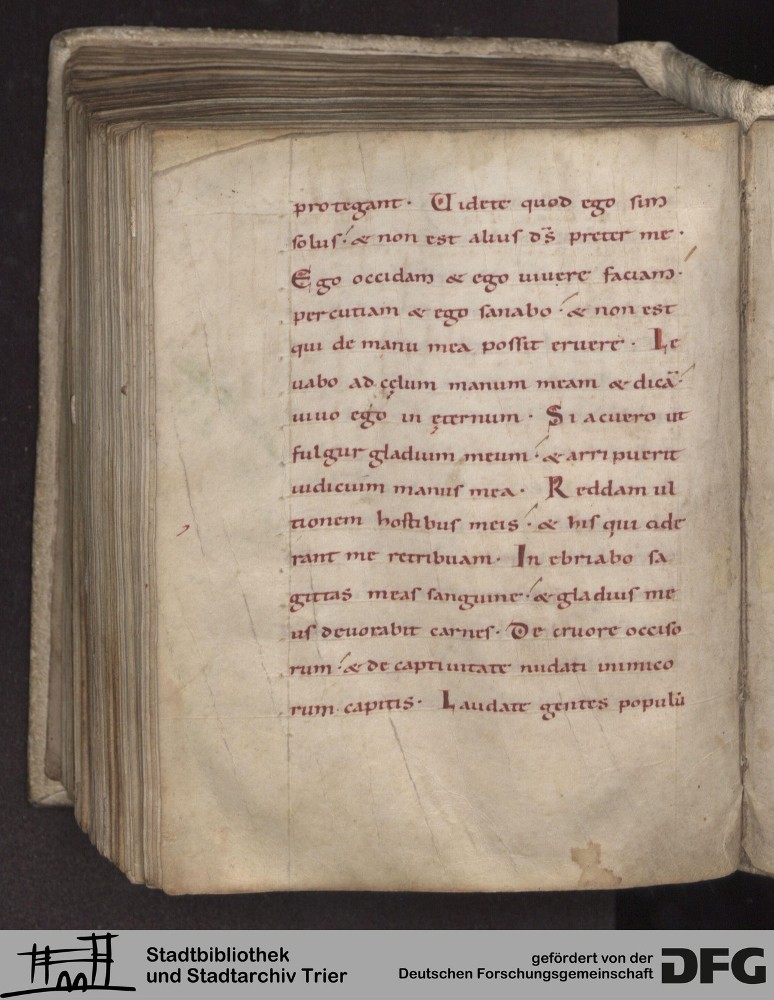 protegant· Uidete quod ego sim
solus·́ & non est alius d̅s preter me·
Ego occidam & ego uiuere faciam·
percutiam & ego sanabo·́ & non est
qui de manu mea possit eruere· Le
uabo ad cęlum manum meam & dicā·́
uiuo ego in ęternum· Si acuero ut
fulgur gladium meum·́ & arripuerit
iudicium manus mea· Reddam ul
tionem hostibus meis·́ & his qui ode
rant me retribuam· Inebriabo sa
gittas meas sanguine·́ & gladius me
us deuorabit carnes· De cruore occiso
rum·́ & de captiuitate nudati inimico
rum capitis· Laudate gentes populū
Stadtbibliothek
und Stadtarchiv Trier
gefördert von der
Deutschen Forschungsgemeinschaft
DFG